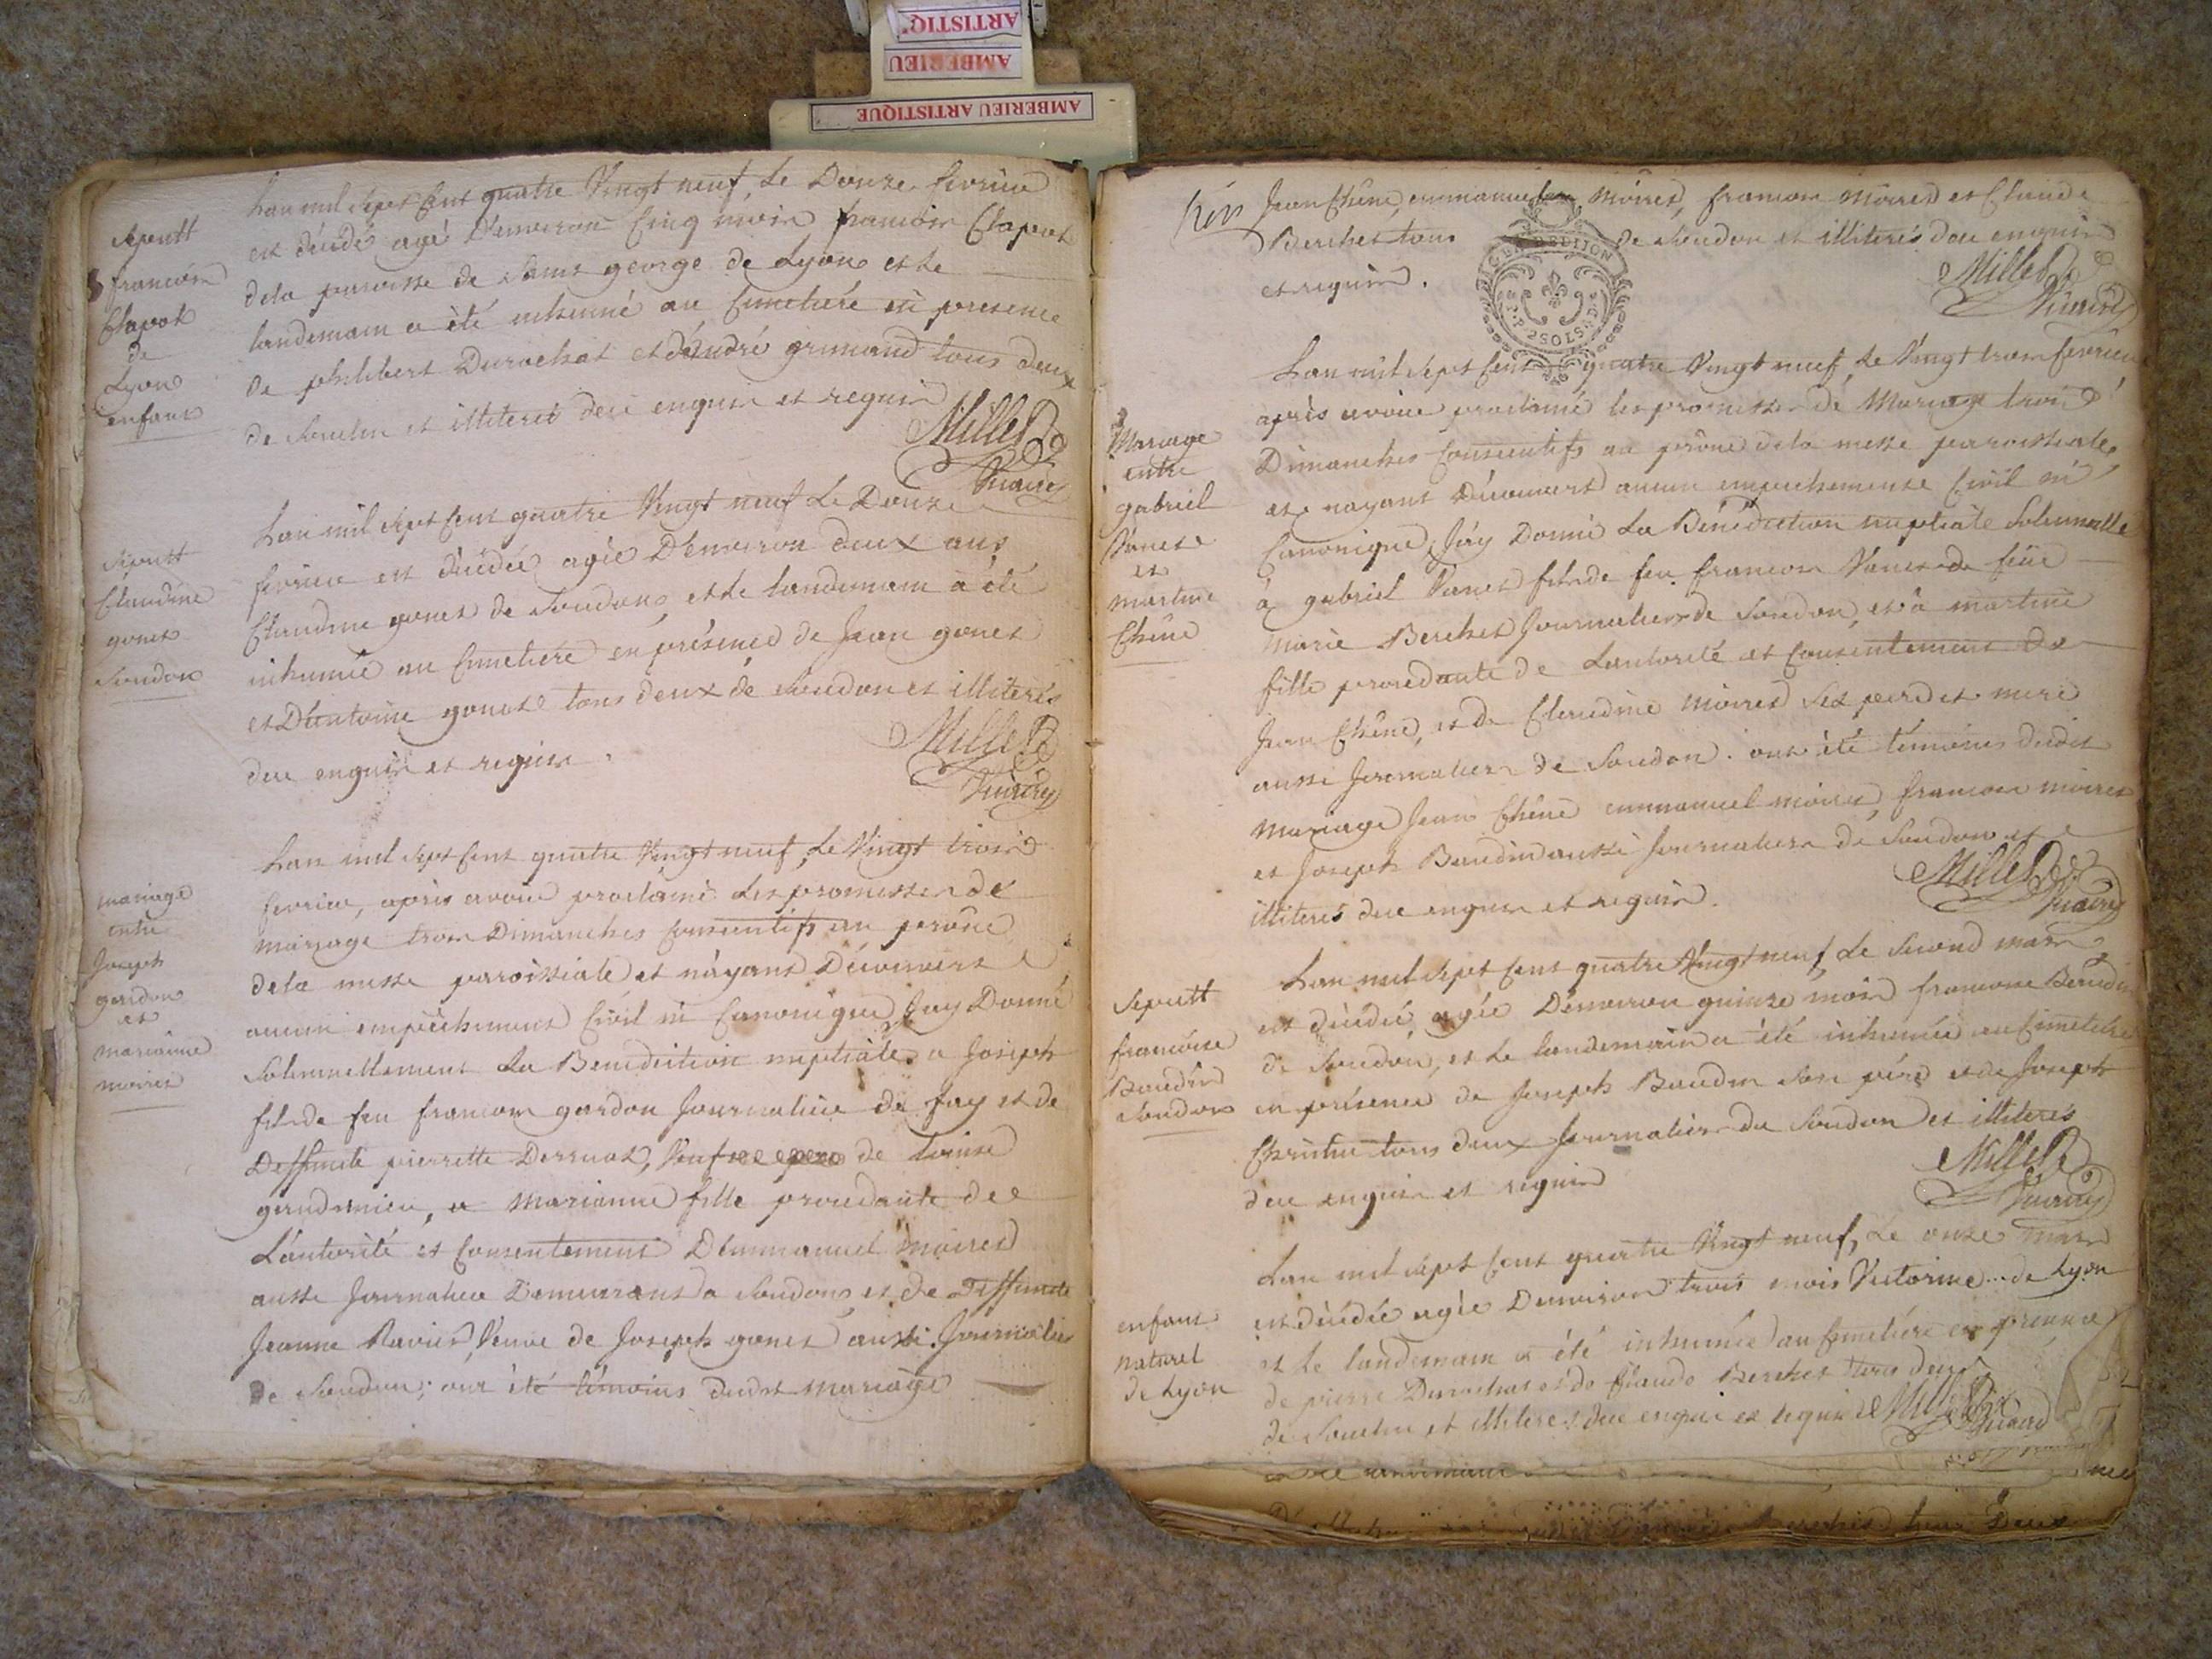 ARTISTIQ
AMBERIEU
AMBERIEU ARTISTIQUE
Sepult
francois
Chapot
de
Lyon
enfant
Lan mil sept Cent quatre Vingt neuf, Le Douze fevrier
est décédé agé D'environ Cinq mois francois Chapot
dela paroisse de Saint george de Lyon et le
landemain a été inhumé au Cimetiére en presence
de philibert Durochat et d'andré grimaud tous deux
de Soudon et illiterés de ce enquis et requis
Millet
Vicaire
Sepult
Claudine
gonet
Soudon
Lan mil sept Cent quatre Vingt neuf Le Douze
fevrier est décédée agée D'environ deux ans
Claudine gonet de Soudon, et le landemain a été
inhumée au Cimetiére en présence de Jean gonet
et D'antoine gonet tous deux de Soudon et illiterés
de ce enquis et requis.
Millet
Vicaire
mariage
entre
Joseph
gardon
et
marianne
moiret
Lan mil sept Cent quatre Vingt neuf, Le Vingt trois
fevrier, après avoir proclamé les promesses de
mariage trois Dimanches Consecutifs au prône
dela messe paroissiale et n'ayant Découvert
aucun empêchement Civil ni Canonique J'ay Donné
Solemnellement La Benediction nuptiale a Joseph
fils de feu francois gardon Journalier de fay et de
Deffunte pierrette Derruat, Veuf de
a Marianne fille procedante de
L'autorité et Consentement D'emmanuel moiret
aussi Journalier Demeurant a Soudon, et de Deffunte
Jeanne Ravier, Veuve de Joseph gonet aussi Journalier
de Soudon; ont été témoins dudit mariage
Jean Chêne, emmanuel moiret, francois moiret et Claude
Berchet tous de Soudon et illiterés de ce enquis
et requis.
Millet
Vicaire
2 SOLS
Mariage
entre
gabriel
Vanet
et
martine
Chêne
Lan mil sept Cent quatre Vingt neuf, Le Vingt trois fevrier
après avoir proclamé les promesses de Mariage trois
Dimanches Consecutifs au prône dela messe paroissiale,
et n'ayant Découvert aucun empechement Civil ni
Canonique, J'ay Donné La Bénédiction nuptiale Solemnelle
à gabriel Vanet fils de feu francois Vanet et de feüe
Marie Berchet Journaliers de Soudon, et à martine
fille procedante de L'autorité et Consentement de
Jean Chêne, et de Claudine moiret Ses pere et mere
aussi Journaliers de Soudon. ont été témoins dudit
Mariage Jean Chêne emmanuel moiret, francois moiret
et Joseph Baudin aussi Journaliers de Soudon et
illiterés de ce enquis et requis.
Millet
Vicaire
Sepult
francoise
Baudin
Soudon
Lan mil sept Cent quatre Vingt neuf, Le Second mars
est décédée agée D'environ quinze mois francoise Baudin
de Soudon, et Le landemain a été inhumée au Cimetiére
en présence de Joseph Baudin Son pére et de Joseph
tous deux Journaliers de Soudon et illiterés
de ce enquis et requis
Millet
Vicaire
enfant
naturel
de Lyon
Lan mil sept Cent quatre Vingt neuf, Le onze mars
est décédée agée D'environ trois mois Victorine... de Lyon
et Le landemain a été inhumée au Cimetiére en presence
de pierre Durochat et de Claude Berchet tous deux
de Soudon et illiterés de ce enquis et requis
Millet
Vicaire